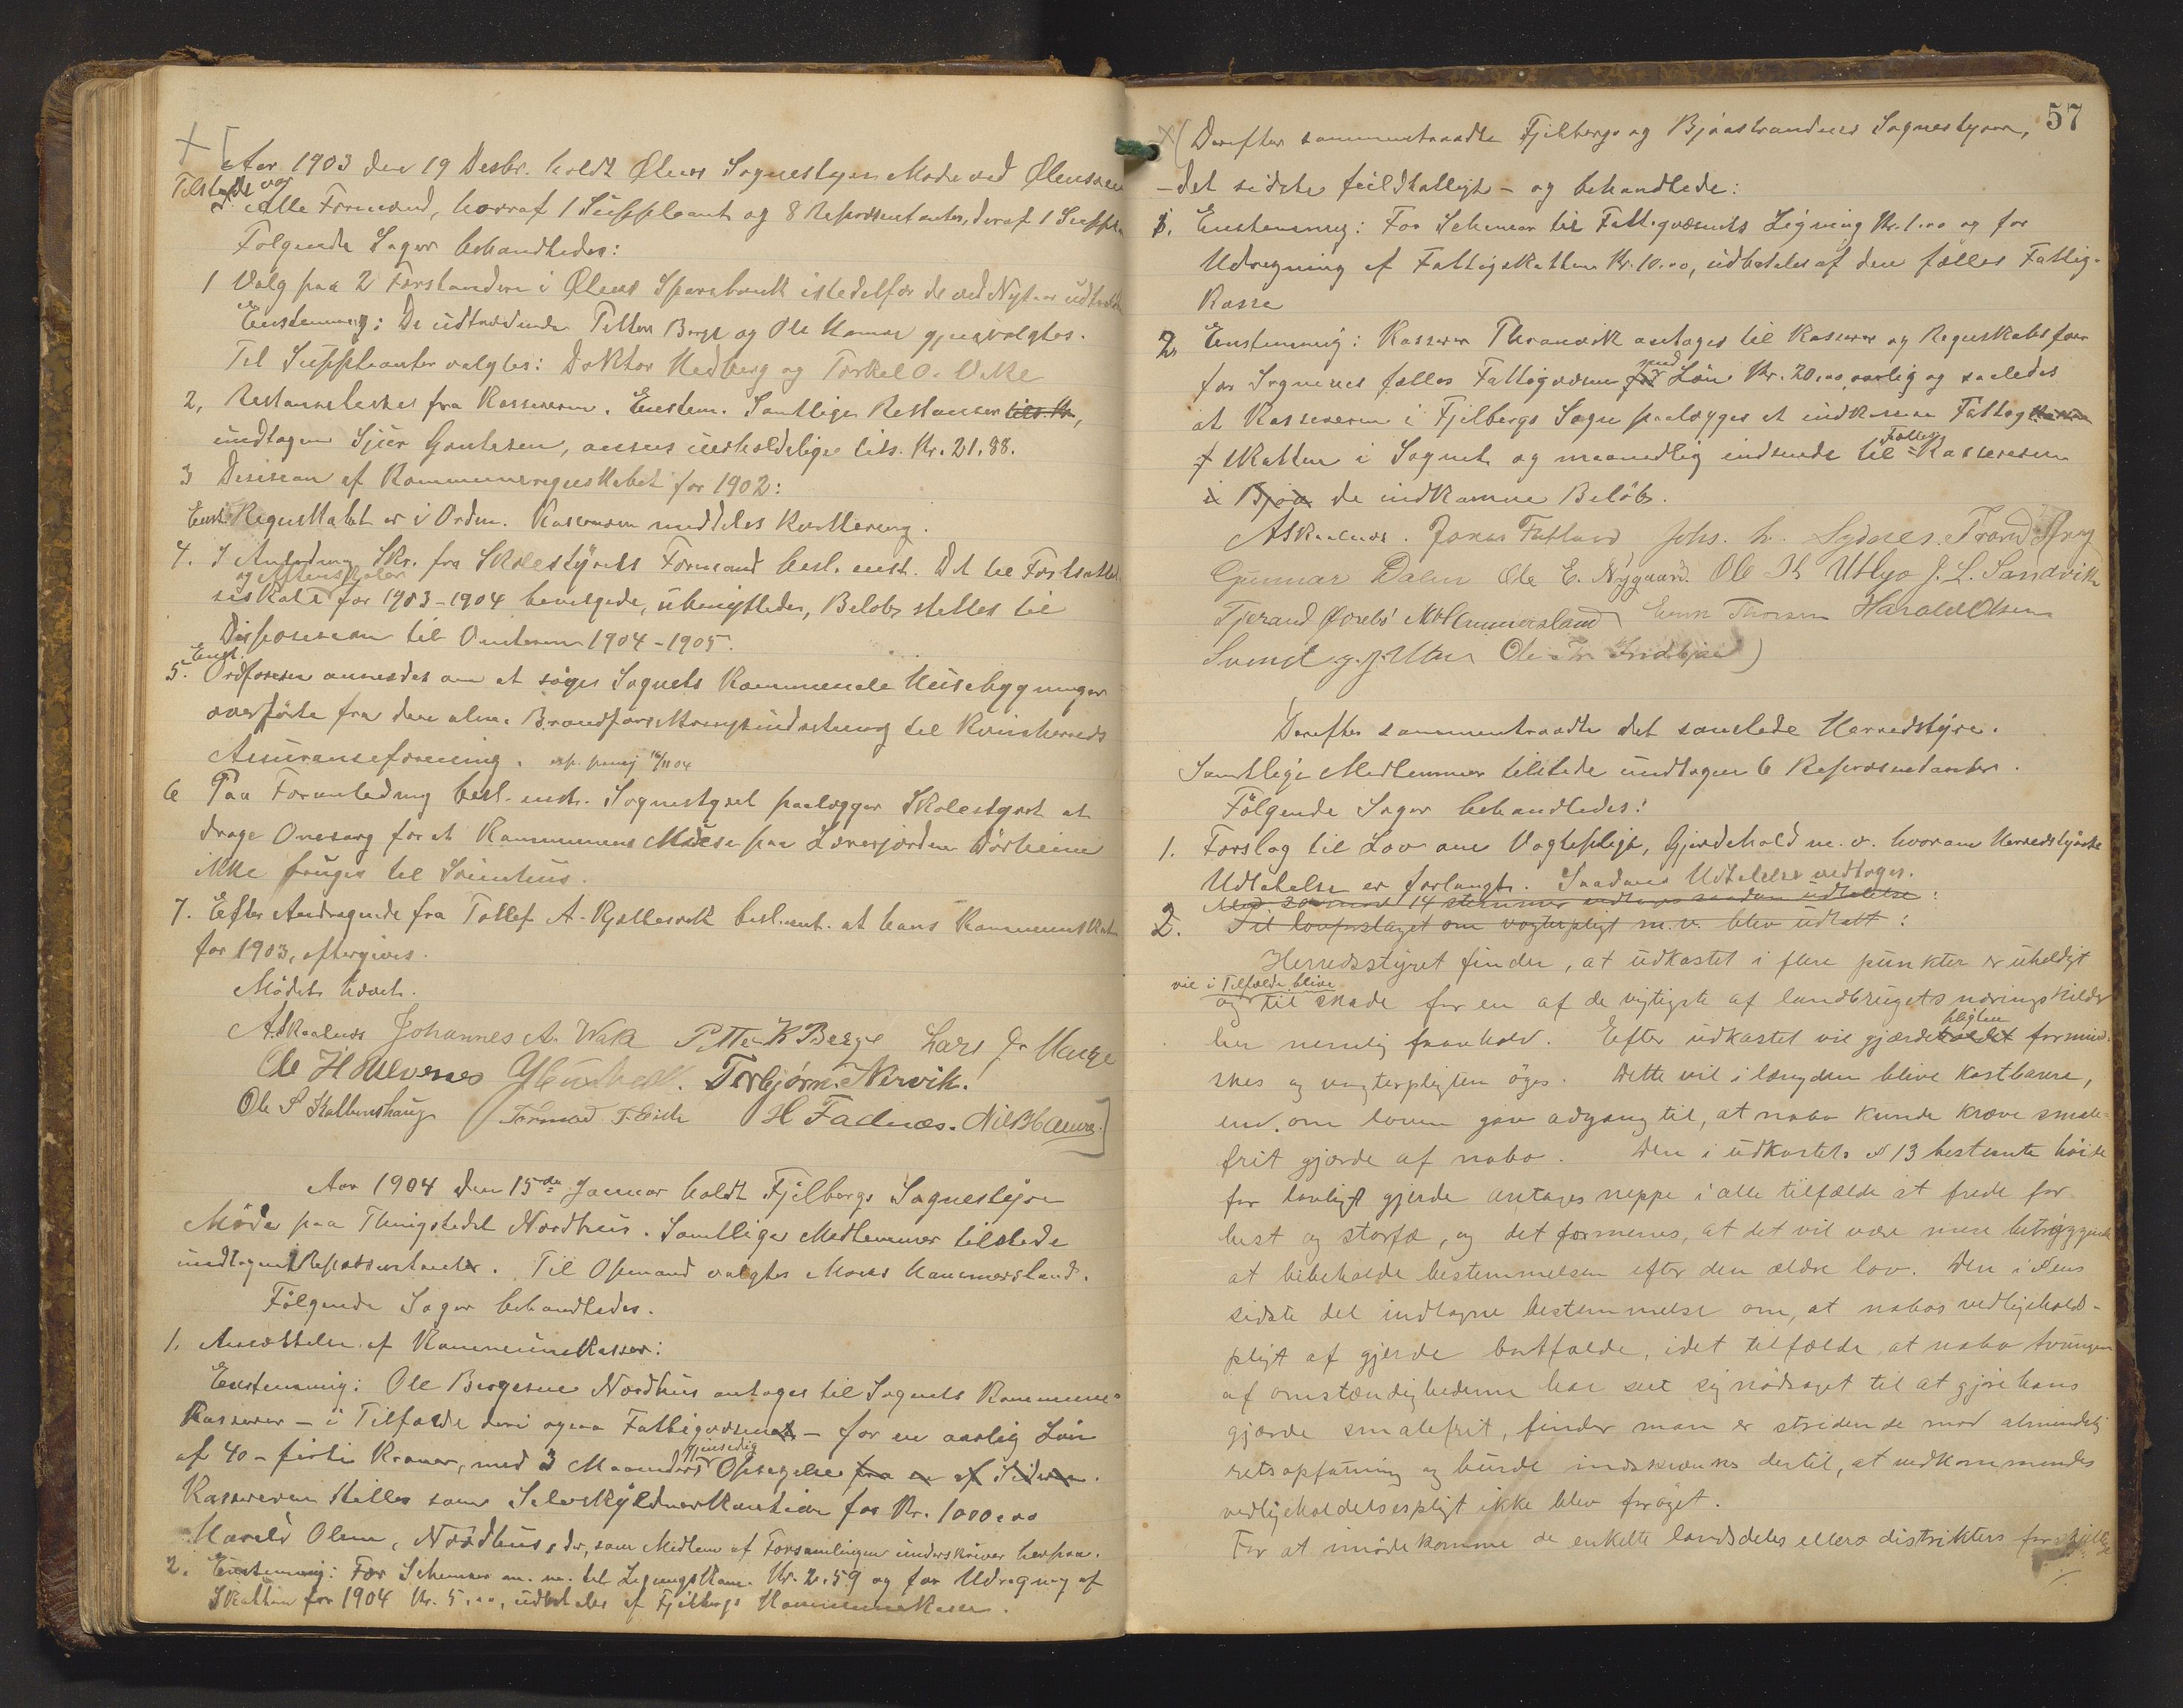 Aar 1903 den 19 Desbr. holdt Ølens Sognestyre Møde ved Ølensøen
Tilstede var
Alle Formænd, hvoraf 1 Suppleant og 8 Repræsentanter, deraf 1 Supple
Følgende Sager behandledes:
1 Valg paa 2 Forstandere i Ølens Sparebank istedetfor de ved Nytaar udtræde
Enstemmig: De udtrædende Petter Berge og Ole Hamre gjenvalgtes.
Til Suppleanter valgtes: Doktor Hedberg og Torkel O. Vake
2, Restanselister fra Kassereren. Enstem. Samtlige Restanser tils. Kr,
undtagen Sjur Gautesen, ansees uerholdelige tils. Kr. 21.88.
3 Desision af Kommuneregnskabet for 1902:
Enst. Regnskabet er i Orden. Kassereren meddeles Kvittering.
4. I Anledning Skr. fra Skolestyrets Formand besl. enst. Det til Fortsættel
og Aftenskoler
seskole for 1903-1904 bevilgede, ubenyttede, Beløb stilles til
Disposision til Vinteren 1904-1905.
Enst.
5. Ordføreren anmodes om at søge Sognets Kommunale Husebygninger
overførte fra den alm. Brandforsikringsindretning til Kvinherreds
Assuranseforening. exp. 16/11 04
6 Paa Foranledning besl. enst. Sognestyret paalægger Skolestyret at
drage Omsorg for at Kommunens Huse paa Lærerjorden Dørheim
ikke bruges til Smiehus.
7. Efter Andragende fra Tollef A. Kjøllesvik besl. ent. at hans Kommuneskat
for 1903, eftergives.
Mødet hævet.
A Skaalnes Johannes A. Vake Petter K Berge Lars J. Hauge
Ole H Halvenes Torbjørn Nervik.
Ole S Kalbenshaug Tormod T. Eide H Fadnæs. Nils H Hamre.
Aar 1904 den 15de Januar holdt Fjelbergs Sognestyre
Møde paa Thingstedet Nordhus. Samtlige Medlemmer tilstede
undtagen 1 Repræsentanter. Til Opmand valgtes Mons Hammersland.
Følgende Sager behandledes.
1. Ansættelse af Kommunekasser:
Enstemmig: Ole Bergesen Nordhus antages til Sognets Kommune-
Kasserer - i Tilfælde deri ogsaa Fattigvæsenet - for en aarlig Løn
gjensidig
af 40 - firti Kroner, med 3 Maaneders Opsigelse fra en af Siderne.
Kassereren stiller som Selvskyldnerkaution for Kr. 1000.00
Harald Olsen, Nordhus, der, som Medlem af Forsamlingen underskriver herpaa.
2. Enstemmig: For Schemaer m. m. til Ligningskom. Kr. 2.59 og for Udregning af
Skatten for 1904 Kr. 5.00, udbetales af Fjelbergs Kommunekasse.
57
Derefter sammentraadte Fjelbergs og Bjoastrandens Sognestyrer,
- det sidste fuldtalligt - og behandlede:
1. Enstemmig: For Schemaer til Fattigvæsenets Ligning Kr. 1.00 og for
Udregning af Fattigskatten Kr. 10.00, udbetales af den fælles Fattig-
Kasse
2, Enstemmig: Kasserer Thranvik antages til Kasserer og Regnskabsfører
mod
for Sognenes fælles Fattigvæsen for Løn Kr. 20.00 aarlig og saaledes
at Kassereren i Fjelbergs Sogn paalægges at indkræve Fattig
Fællesf
skatten i Sognet og maanedlig indsende til Kassereren
i Bjoa de indkomne Beløb.
A Skaalnes. Jonas Fatland Johs. L. Sydnes. Trond
Gunnar Dalen Ole E. Nygaard. Ole Th Utbjo J. L. Sandvik
Tjerand Ørebø M Hammersland Enok Thorsen Harald Olsen
Svend g. J. Utne Ole Tr. Indbjoe
Derefter sammentraadte det samlede Herredstyre.
Samtlige Medlemmer tilstede undtagen 6 Repræsentanter.
Følgende Sager behandledes:
1. Forslag til Lov om Vogtepligt, Gjerdehold m. v. hvorom Herredstyrets
Udtalelse er forlangt. Saadan Udtalelse vedtoges.
Med 20 mod 14 stemmer vedtoges saadan udtalelse:
2. Til lovforslaget om vogterpligt m.v. blev udtalt:
Herredsstyret finder, at udkastet i flere punkter er uheldigt
vil i Tilfælde blive
og til skade for en af de vigtigste af landbrugets næringskilder
pligten
her nemlig faarehold. Efter udkastet vil gjærdeholdet formind-
skes og vogterpligten øges. Dette vil i længden blive kostbarere,
end om loven gav adgang til, at nabo kunde kræve smale-
frit gjærde af nabo. Den i udkastets § 13 bestemte høide
for lovligt gjerde antages neppe i alle tilfælde at frede for
hest og storfæ, og det formenes, at det vil være mere betryggende
at bibeholde bestemmelsen efter den ældre lov. Den i §ens
sidste del indtagne bestemmelse om, at nabos vedligeholds-
pligt af gjerde bortfalde, i det tilfælde at nabo tvungen
af omstændighederne har seet sig nødsaget til at gjøre hans
gjærde smalefrit, finder man er stridende mod almindelig
retsopfatning og burde indskrænkes dertil, at vedkommendes
vedligeholdelsespligt ikke blev forøget.
For at imødekomme de enkelte landsdeles ellers distrikters forskjellige